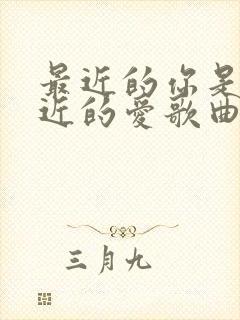 最近的你是
近的愛歌曲
三月九